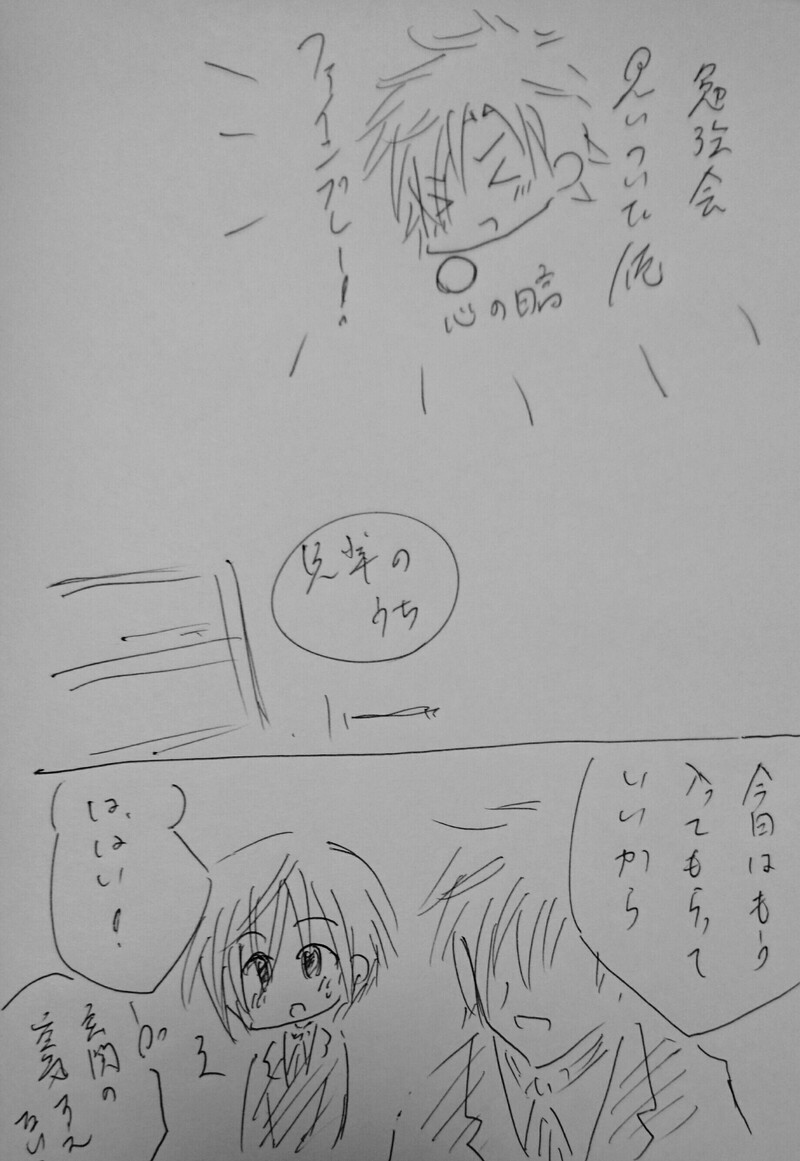 勉強会
思いついた俺
ファインプレー!
心の
先輩の
うち
今日はもう
入ってもらって
いいから
は、はい!
玄関の